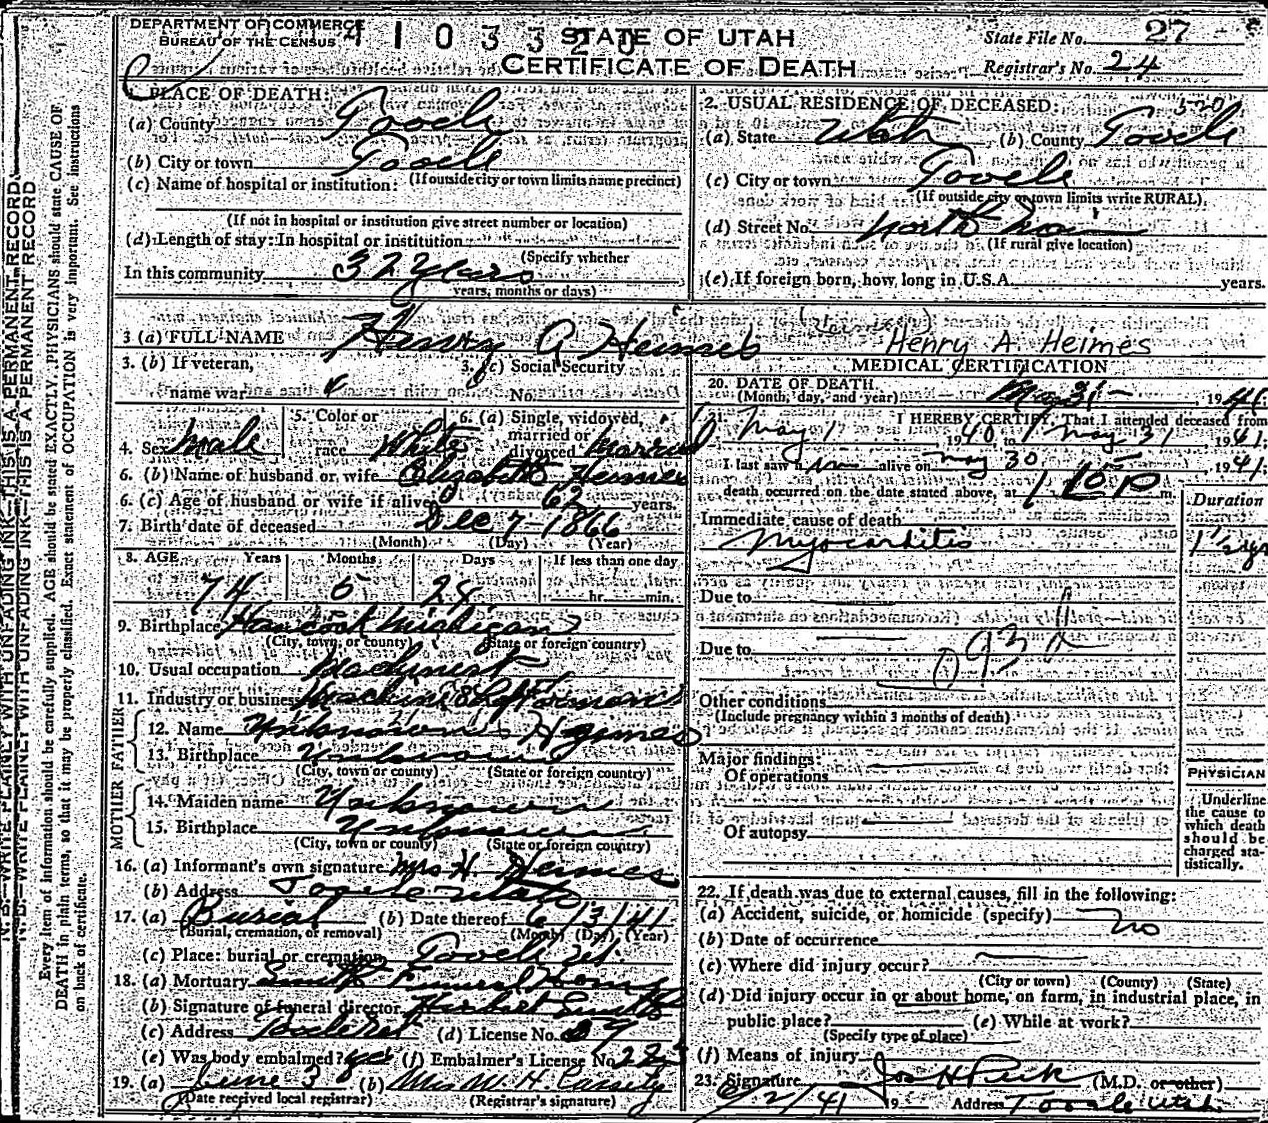 DEPARTMENT OF COMMERCE
BUREAU OF THE CENSUS
4103320
STATE OF UTAH
CERTIFICATE OF DEATH
State File No. 27
Registrar's No. 24
1. PLACE OF DEATH:
(a) County Tooele
(b) City or town Tooele
(If outside city or town limits name precinct)
(c) Name of hospital or institution:
(If not in hospital or institution give street number or location)
(d) Length of stay: In hospital or institution
(Specify whether
In this community 32 years
years, months or days)
2. USUAL RESIDENCE OF DECEASED:
(a) State Utah (b) County Tooele
(c) City or town Tooele
(If outside city or town limits write RURAL)
(d) Street No. North Main
(If rural give location)
(e) If foreign born, how long in U.S.A. years.
3 (a) FULL NAME Henry A Heimes
Henry A. Heimes
3. (b) If veteran,
name war
3. (c) Social Security
No.
4. Sex Male
5. Color or
race White
6. (a) Single, widowed,
married or
divorced Married
6. (b) Name of husband or wife Elizabeth Heimes
6. (c) Age of husband or wife if alive 62 years.
7. Birth date of deceased Dec 7 1866
(Month) (Day) (Year)
8. AGE Years Months Days If less than one day
74 5 24 hr. min.
9. Birthplace Hancock Michigan
(City, town, or county) (State or foreign country)
10. Usual occupation Machinist
11. Industry or business
FATHER
12. Name Unknown Heimes
13. Birthplace Unknown
(City, town or county) (State or foreign country)
MOTHER
14. Maiden name Unknown
15. Birthplace Unknown
(City, town or county) (State or foreign country)
16. (a) Informant's own signature Mrs H. Heimes
(b) Address Tooele Utah
17. (a) Burial (b) Date thereof 6/3/41
(Burial, cremation, or removal) (Month) (Day) (Year)
(c) Place: burial or cremation Tooele Ut.
18. (a) Mortuary Smith Funeral Home
(b) Signature of funeral director Herbert Smith
(c) Address Tooele Ut (d) License No. 89
(e) Was body embalmed? yes (f) Embalmer's License No.
19. (a) June 3 (b) Mrs W. H. Cassity
(Date received local registrar) (Registrar's signature)
MEDICAL CERTIFICATION
20. DATE OF DEATH
(Month, day, and year) May 31 1941
21. I HEREBY CERTIFY, That I attended deceased from
May 1 1940 to May 31 1941;
I last saw him alive on May 30, 1941;
death occurred on the date stated above, at m.
Duration
Immediate cause of death
Myocarditis
Due to
Due to
93
Other conditions
(Include pregnancy within 3 months of death)
Major findings:
Of operations
Of autopsy
PHYSICIAN
Underline
the cause to
which death
should be
charged sta-
tistically.
22. If death was due to external causes, fill in the following:
(a) Accident, suicide, or homicide (specify) no
(b) Date of occurrence
(c) Where did injury occur?
(City or town) (County) (State)
(d) Did injury occur in or about home, on farm, in industrial place, in
public place? (e) While at work?
(Specify type of place)
(f) Means of injury
23. Signature Jos H Peck (M.D. or other)
6/2/41 19 Address Tooele Utah.
N. B.—WRITE PLAINLY WITH UNFADING INK—THIS IS A PERMANENT RECORD
Every item of information should be carefully supplied. AGE should be stated EXACTLY. PHYSICIANS should state CAUSE OF
DEATH in plain terms, so that it may be properly classified. Exact statement of OCCUPATION is very important. See instructions
on back of certificate.